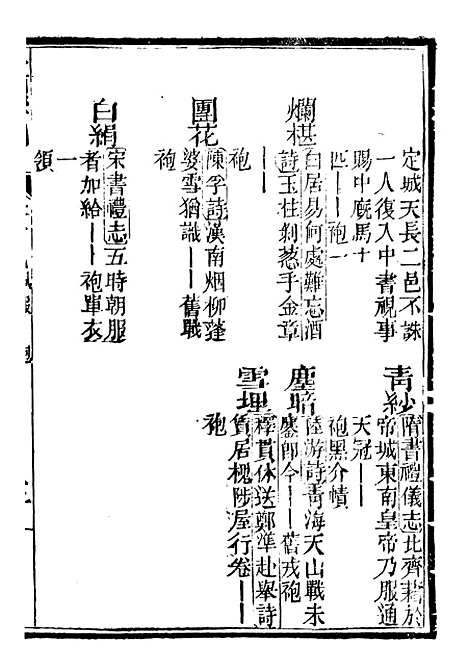 定城天長二邑不誅
一人復入中書視事
賜中廐馬十
匹——袍一
青紗
隋書禮儀志北齊耤於
帝城東南皇帝乃服通
天冠——
袍黑介幘
爛椹
白居易何處難忘酒
詩玉柱剥葱手金章
——
袍
塵暗
陸游詩青海天山戰未
鏖即今——舊戎袍
團花
陳孚詩漢南烟柳蓬
婆雪猶識——舊戰
袍
雪埋
釋貫休送鄭準赴舉詩
賃居槐陟屋行卷——
袍
白絹
宋書禮志五時朝服
者加給——袍單衣
一
領